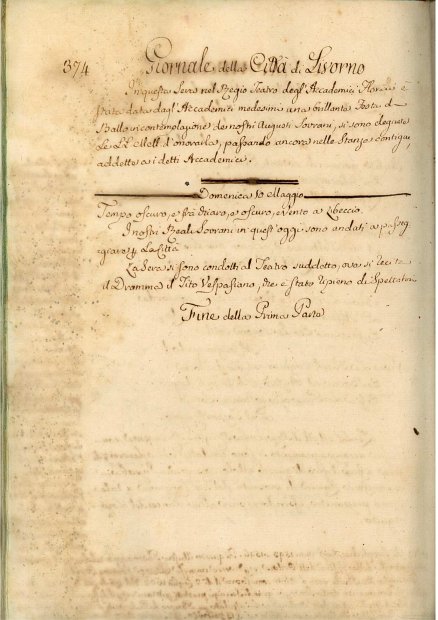 374 Giornale della Città di Livorno
In questa Sera nel Regio Teatro degl'Accademici
stata data dagl'Accademici medesimi una brillante Festa di
Ballo in contemplazione de nostri Augusti Sovrani, si sono degnate
Le LL. MM. d'onorarla, passando ancora nelle Stanze Contigue,
addette a i detti Accademici.
Domenica 10 Maggio
Tempo oscuro, e frà chiaro, e oscuro, e vento a Libeccio.
I nostri Reali Sovrani in quest'oggi sono andati a
La Città
La Sera si sono condotti al Teatro suddetto, ove si recita
il Dramma il Tito Vespasiano, che è stato ripieno di Spettatori
Fine della Prima Parte